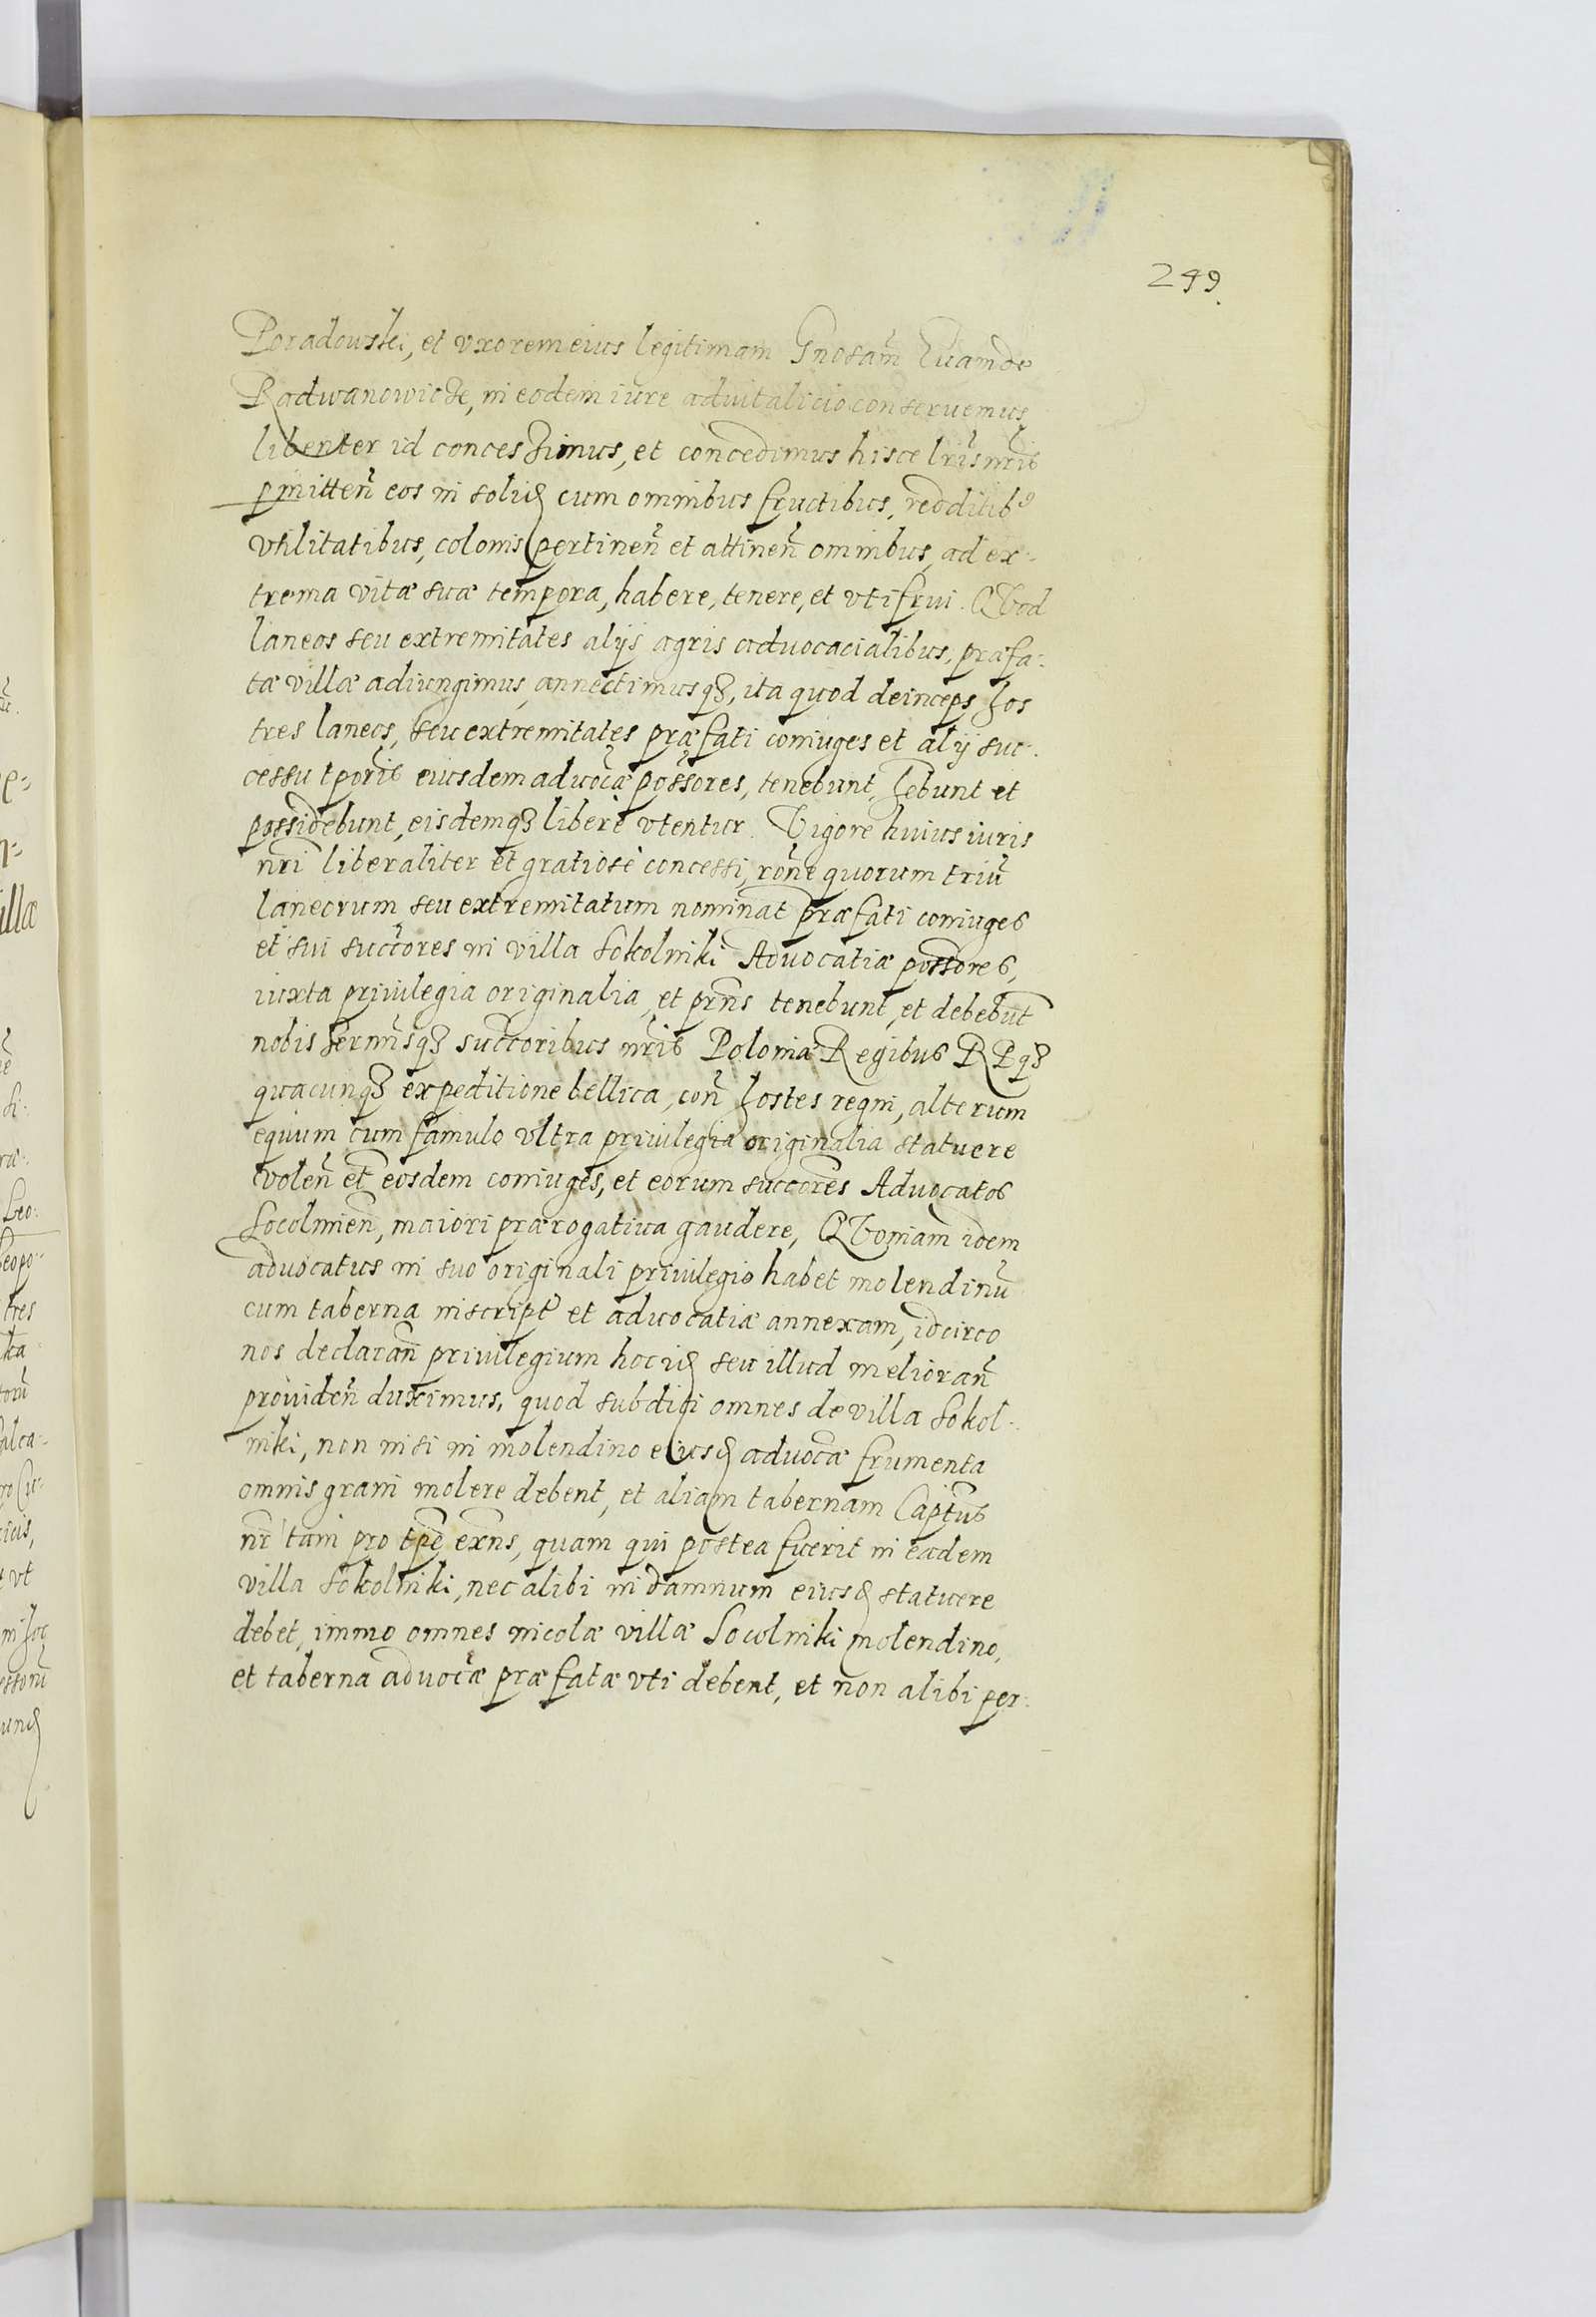 249.
Poradowski, et vxorem eius legitimam Gnosam̃ Euam de
Radwanowicze, in eodem iure aduitalicio conseruemus
libenter id concessimus, et concedimus hisce lr̃is nr̃is
pmitten̄ eos in solid cum omnibus fructibus, redditib9
vtilitatibus, colonis pertinen̄ et attinen̄ omnibus, ad ex-
trema vitæ suæ tempora, habere, tenere, et vti frui. QVod
laneos seu extremitates alijs agris aduocacialibus, præfa-
tæ villæ adiungimus, annectimusqȝ, ita quod deinceps hos
tres laneos, seu extremitates præfati coniuges et alij suc-
cessu tporis eiusdem aduocæ possores, tenebunt, hebunt et
possidebunt, eisdemqȝ liberè vtentur. Vigore huius iuris
nr̄i liberaliter et gratiosè concessi, rōne quorum triū
laneorum seu extremitatum nominat præfati coniuges
et sui succores in villa Sokolniki Aduocatiæ possores,
iuxta priuilegia originalia, et prn̄s tenebunt, et debebunt
nobis sermisqȝ succoribus nr̄is Poloniæ Regibus RPqȝ
quacunqȝ expeditione bellica, con̄ hostes regni, alterum
equum cum famulo vltra priuilegia originalia statuere
volen̄ et eosdem coniuges, et eorum succores Aduocatos
Socolnien̄, maiori prærogatiua gaudere, QVoniam idem
aduocatus in suo originali priuilegio habet molendinū
cum taberna inscript et aduocatiæ annexam, idcirco
nos declaran̄ priuilegium hoc id seu illud melioran̄
prouiden̄ duximus, quod subditi omnes de villa Sokol-
niki, non nisi in molendino eiusd aduocæ frumenta
omnis grani molere debent, et aliam tabernam Captus
nr̄ tam pro tpe exn̄s, quam qui postea fuerit in eadem
villa Sokolniki, nec alibi in damnum eiusd statuere
debet, immo omnes incolæ villæ Socolniki molendino,
et taberna aduocæ præfatæ vti debent, et non alibi per-